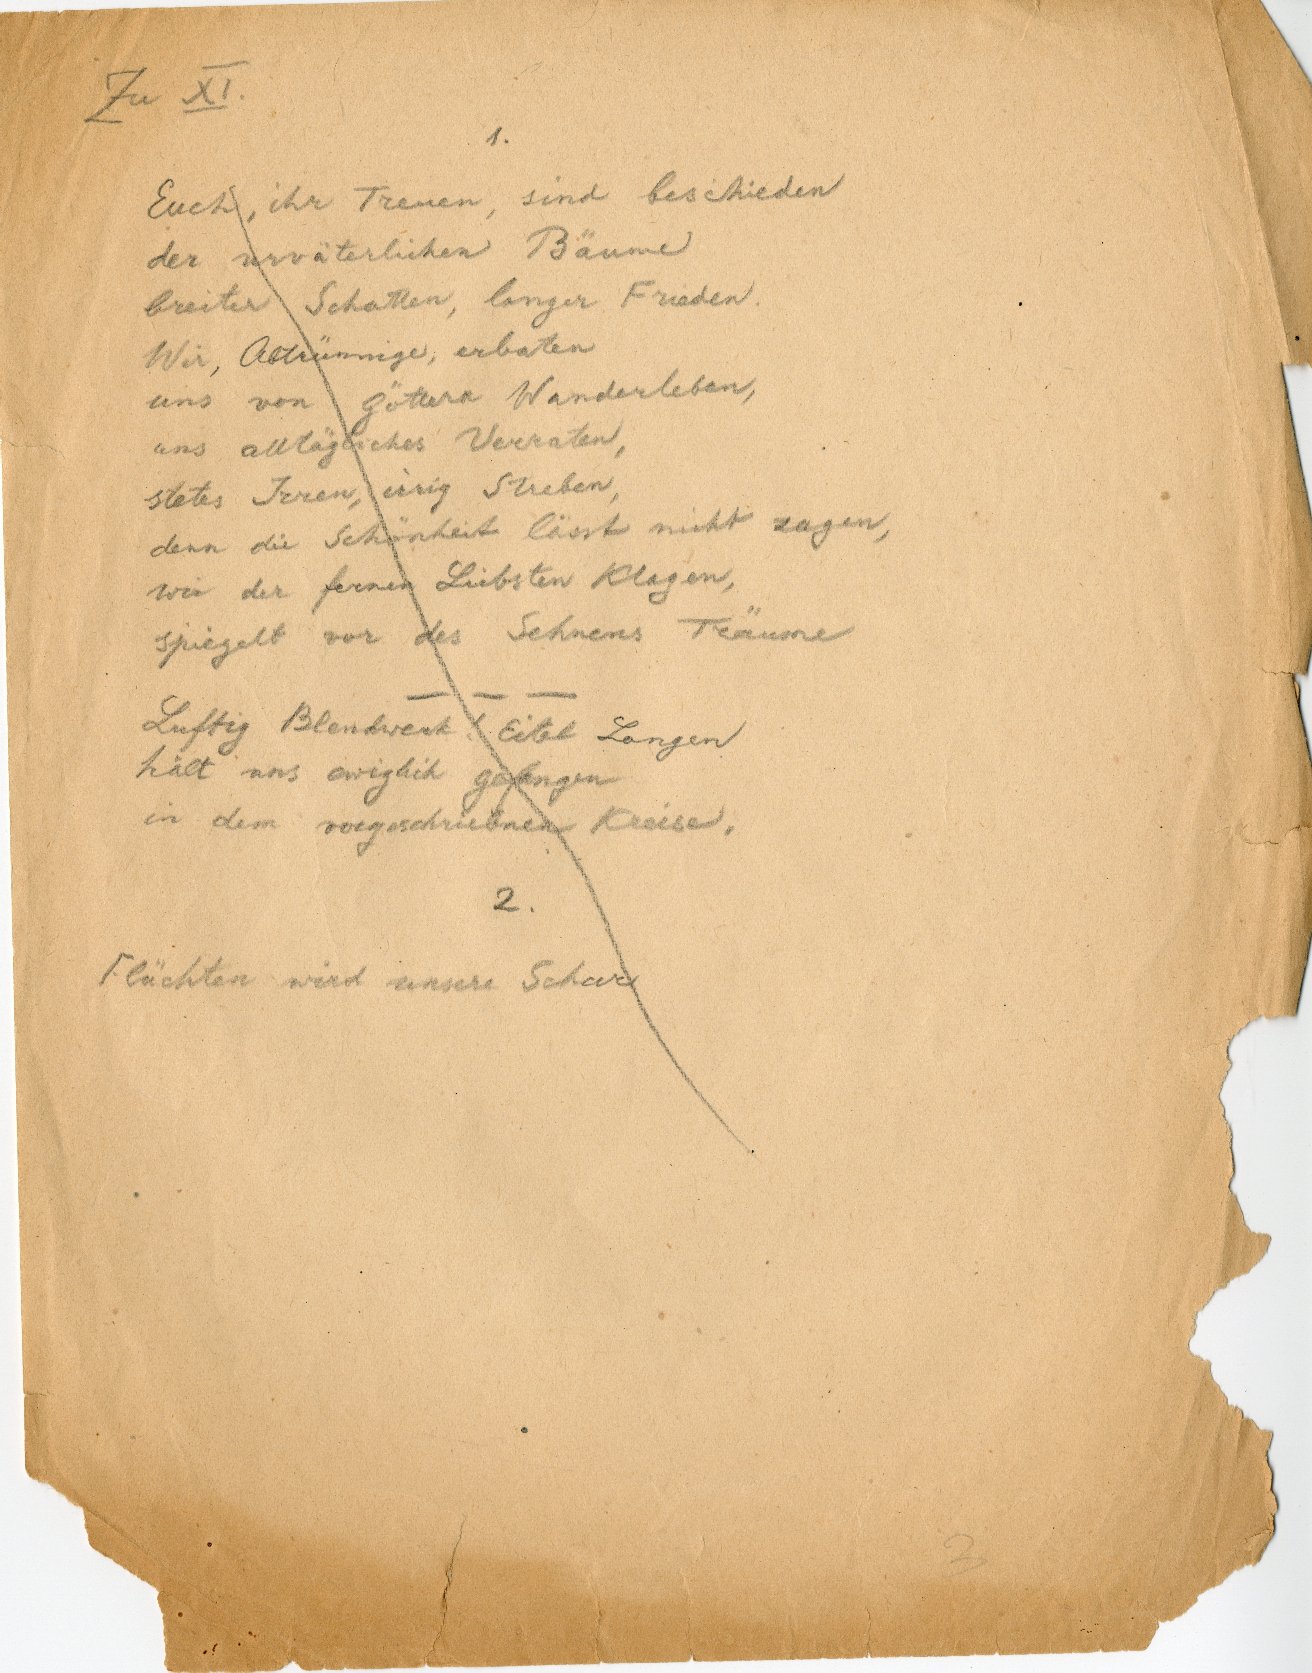 Zu XI.
1.
Euch, ihr Treuen, sind beschieden
der urväterlichen Bäume
breiter Schatten, langer Frieden.
Wir, Abtrünnige, erbaten
uns von Göttern Wanderleben,
uns alltägliches Verraten,
stetes Irren, irrig Streben,
denn die Schönheit lässt nicht zagen,
wie der fernen Liebsten Klagen,
spiegelt vor des Sehnens Träume
— — —
Luftig Blendwerk! Eitel Langen
hält uns ewiglich gefangen
in dem vorgeschriebnen Kreise.
2.
Flüchten wird unsere Schar
3